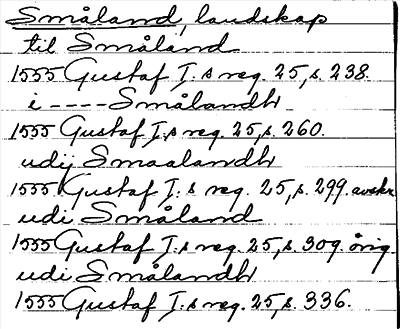 Småland, landskap
til Småland
1555 Gustaf I:s reg. 25, s. 238.
i ---- Smålandh
1555 Gustaf I:s reg. 25, s. 260.
udij Smaalandh
1555 Gustaf I:s reg. 25, s. 299. avskr.
udi Småland
1555 Gustaf I:s reg. 25, s. 309. orig.
udi Smålandh
1555 Gustaf I:s reg. 25, s. 336.